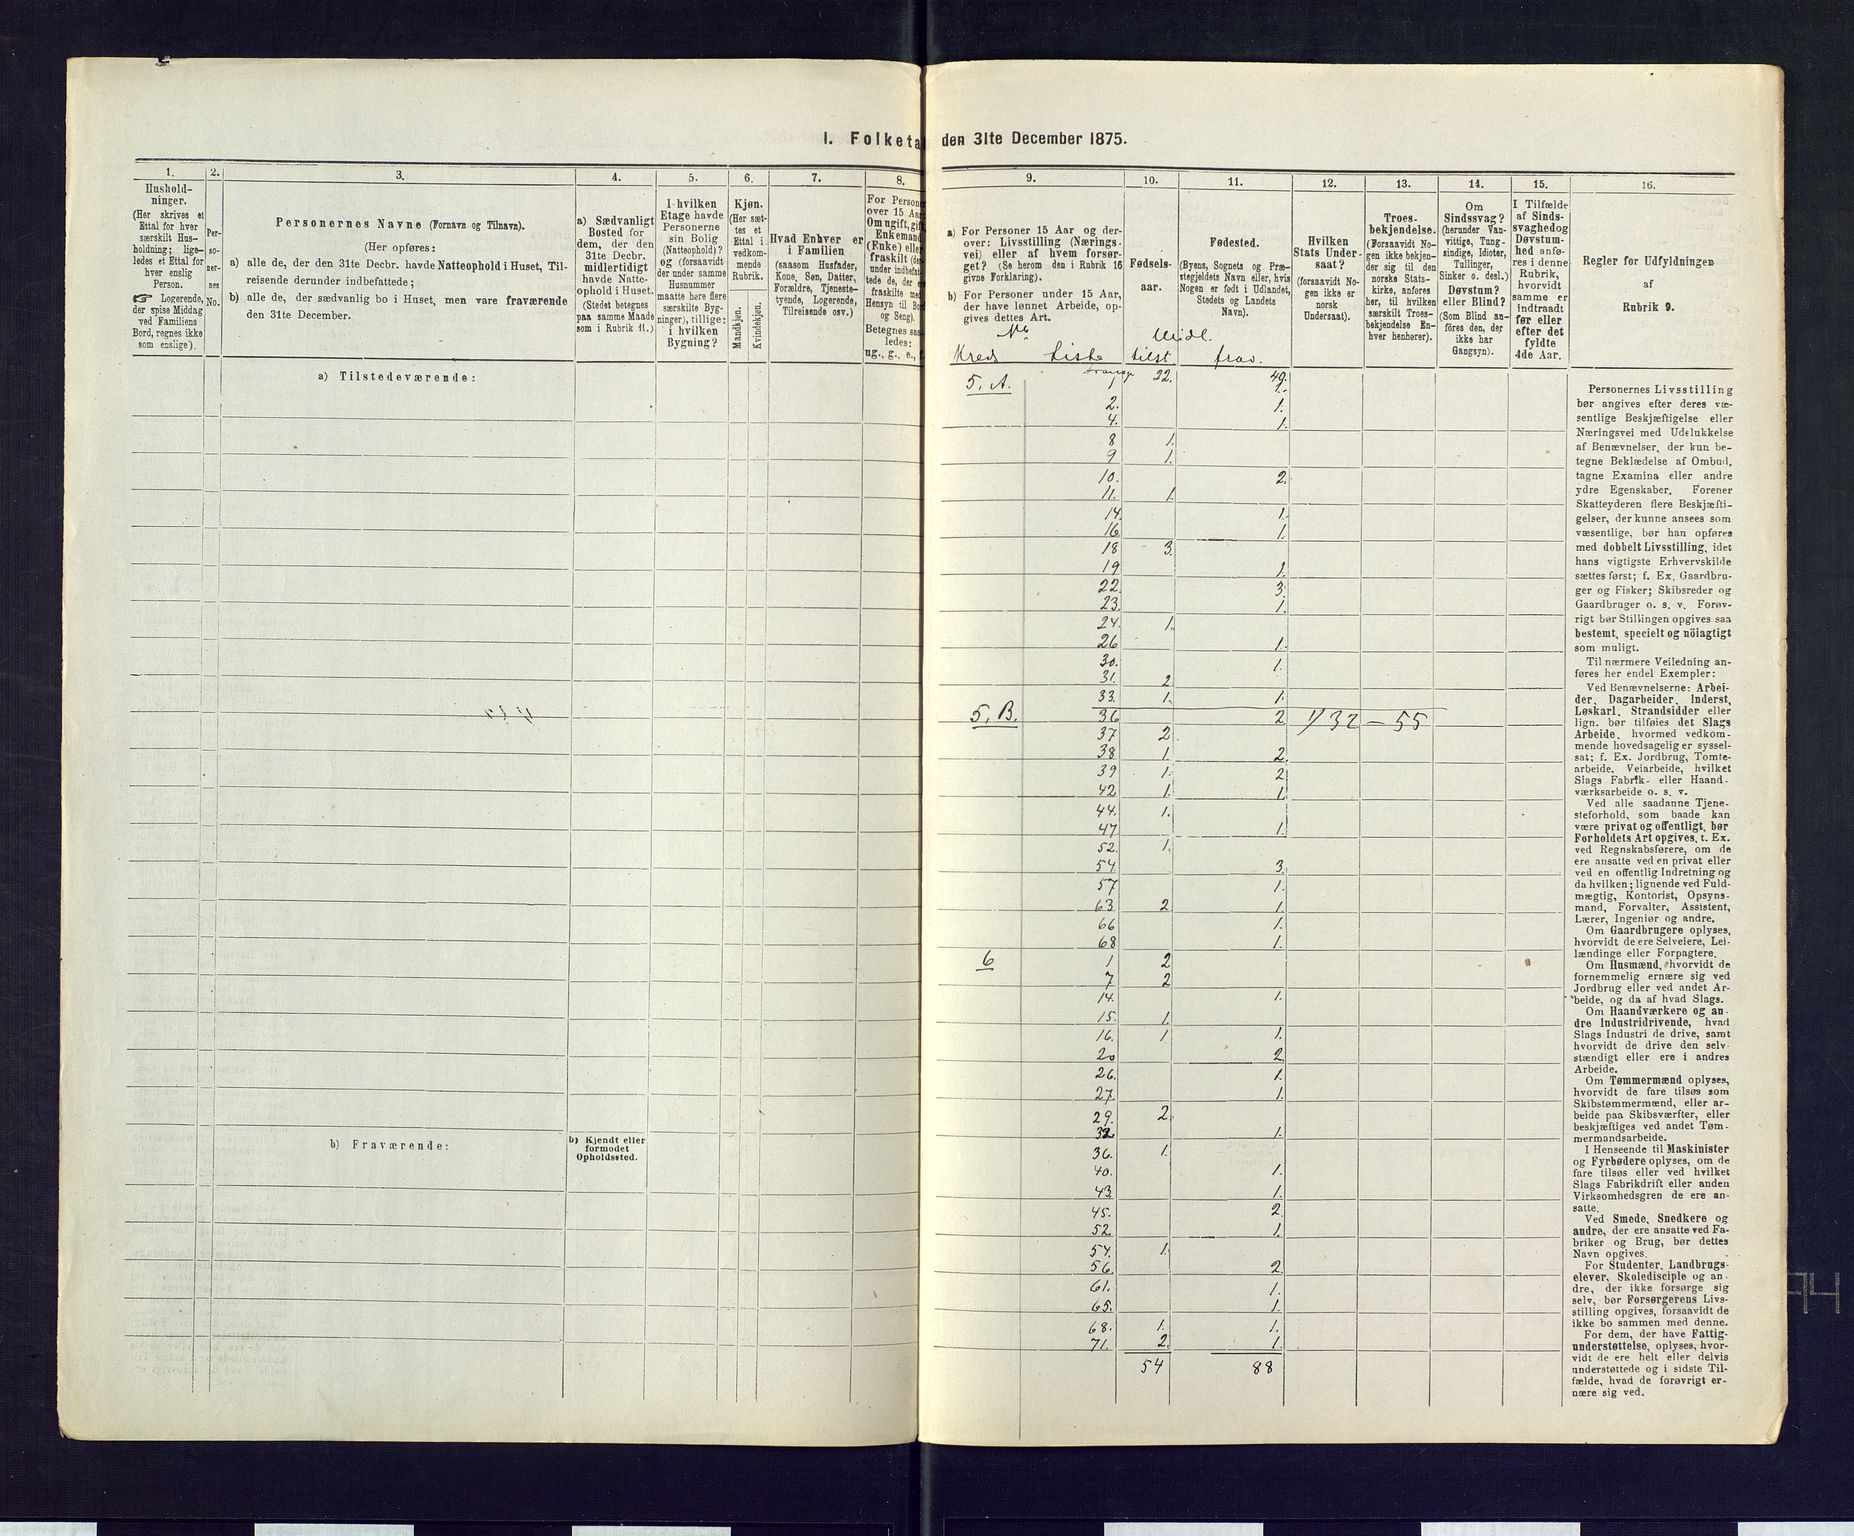 I. Folketa den 31te December 1875.
1.
Hushold-
ninger.
(Her skrives et
Ettal for hver
særskilt Hus-
holdning; lige-
ledes et Ettal for
hver enslig
Person.
☞ Logerende,
der spise Middag
ved Familiens
Bord, regnes ikke
som enslige).
2.
Per-
so-
ner-
nes
No.
3.
Personernes Navne (Fornavn og Tilnavn).
(Her opføres:
a) alle de, der den 31te Decbr. havde Natteophold i Huset, Til-
reisende derunder indbefattede;
b) alle de, der sædvanlig bo i Huset, men vare fraværende
den 31te December.
4.
a) Sædvanligt
Bosted for
dem, der den
31te Decbr.
midlertidigt
havde Natte-
ophold i Huset.
(Stedet betegnes
paa samme Maade
som i Rubrik 11.)
5.
I hvilken
Etage havde
Personerne
sin Bolig
(Natteophold)?
og (forsaavidt
der under samme
Husnummer
maatte høre flere
særskilte Byg-
ninger), tillige:
i hvilken
Bygning?
6.
Kjøn.
(Her sæt-
tes et
Ettal i
vedkom-
mende
Rubrik.
Mandkjøn.
Kvindekjøn.
7.
Hvad Enhver er
i Familien
(saasom Husfader,
Kone, Søn, Datter,
Forældre, Tjeneste-
tyende, Logerende,
Tilreisende osv.)
8.
For Persone
over 15 Aa
Om ugift, gif
Enkemand
(Enke) elle
fraskilt (de
under indbefat
tede de, der e
fraskilte med
Hensyn til Bo
og Seng).
Betegnes saa
ledes:
ug., g., e.,
9.
a) For Personer 15 Aar og der-
over: Livsstilling (Nærings-
vei) eller af hvem forsør-
get? (Se herom den i Rubrik 16
givne Forklaring).
b) For Personer under 15 Aar,
der have lønnet Arbeide, op-
gives dettes Art.
10.
Fødsels-
aar.
11.
Fødested.
(Byens, Sognets og Præ-
stegjeldets Navn eller, hvis
Nogen er født i Udlandet,
Stedets og Landets
Navn).
12.
Hvilken
Stats Under-
saat?
(forsaavidt No-
gen ikke er
norsk
Undersaat).
13.
Troes-
bekjendelse.
(Forsaavidt No-
gen ikke bekjen-
der sig til den
norske Stats-
kirke, anføres
her, til hvilken
særskilt Troes-
bekjendelse En-
hver henhører).
14.
Om
Sindssvag?
(herunder Van-
vittige, Tung-
sindige, Idioter,
Tullinger,
Sinker o. desl.)
Døvstum?
eller Blind?
(Som Blind an-
føres den, der
ikke har
Gangsyn).
15.
I Tilfælde
af Sinds-
svaghed og
Døvstum-
hed anfø-
res i denne
Rubrik,
hvorvidt
samme er
indtraadt
før eller
efter det
fyldte
4de Aar.
16.
Regler for Udfyldningen
af
Rubrik 9.
No Midl.
Kreds Liste tilst. frav.
a) Tilstedeværende:
transp 22. 49.
5. A. 1 1.
2. 1.
4. 1.
8 1.
9 1.
10. 2.
11. 1.
14. 1.
16. 1.
18 3.
19 1.
22. 3.
23. 1.
24. 1.
26 1.
30. 1.
31. 2
33. 1. 1.
5. B. 36 2 1/32 – 55
37 2
38 1. 2.
39 1. 2
42 1. 1
44. 1.
47 1.
52. 1.
54 3.
57 1.
63 2 1.
66 1.
68 1.
6 1 2
7 2
14. 1.
15. 1.
16. 1 1.
20 2.
26. 1.
27. 1.
29. 2.
32 1.
36. 1.
40. 1.
43. 1.
45. 2
52. 1.
54. 1.
56. 2.
61. 1.
65. 1.
68. 1. 1.
71. 2. 1.
54 88
b) Fraværende:
b) Kjendt eller
formodet
Opholdssted.
Personernes Livsstilling
bør angives efter deres væ-
sentlige Beskjæftigelse eller
Næringsvei med Udelukkelse
af Benævnelser, der kun be-
tegne Beklædelse af Ombud,
tagne Examina eller andre
ydre Egenskaber. Forener
Skatteyderen flere Beskjæfti-
gelser, der kunne ansees som
væsentlige, bør han opføres
med dobbelt Livsstilling, idet
hans vigtigste Erhvervskilde
sættes først; f. Ex. Gaardbru-
ger og Fisker; Skibsreder og
Gaardbruger o. s. v. Forøv-
rigt bør Stillingen opgives saa
bestemt, specielt og nöiagtigt
som muligt.
Til nærmere Veiledning an-
føres her endel Exempler:
Ved Benævnelserne: Arbei-
der, Dagarbeider, Inderst,
Løskarl, Strandsidder eller
lign. bør tilføies det Slags
Arbeide, hvormed vedkom-
mende hovedsagelig er syssel-
sat; f. Ex. Jordbrug, Tomte-
arbeide, Veiarbeide, hvilket
Slags Fabrik- eller Haand-
værksarbeide o. s. v.
Ved alle saadanne Tjene-
steforhold, som baade kan
være privat og offentligt, bør
Forholdets Art opgives, t. Ex.
ved Regnskabsførere, om de
ere ansatte ved en privat eller
ved en offentlig Indretning og
da hvilken; lignende ved Fuld-
mægtig, Kontorist, Opsyns-
mand, Forvalter, Assistent,
Lærer, Ingeniør og andre.
Om Gaardbrugere oplyses,
hvorvidt de ere Selveiere, Lei-
lændinge eller Forpagtere.
Om Husmænd, hvorvidt de
fornemmelig ernære sig ved
Jordbrug eller ved andet Ar-
beide, og da af hvad Slags.
Om Haandværkere og an-
dre Industridrivende, hvad
Slags Industri de drive, samt
hvorvidt de drive den selv-
stændigt eller ere i andres
Arbeide.
Om Tømmermænd oplyses,
hvorvidt de fare tilsøs som
Skibstømmermænd, eller ar-
beide paa Skibsværfter, eller
beskjæftiges ved andet Tøm-
mermandsarbeide.
I Henseende til Maskinister
og Fyrbødere oplyses, om de
fare tilsøs eller ved hvilket
Slags Fabrikdrift eller anden
Virksomhedsgren de ere an-
satte.
Ved Smede, Snedkere og
andre, der ere ansatte ved Fa-
briker og Brug, bør dettes
Navn opgives.
For Studenter, Landbrugs-
elever, Skoledisciple og an-
dre, der ikke forsørge sig
selv, bør Forsørgerens Livs-
stilling opgives, forsaavidt de
ikke bo sammen med denne.
For dem, der have Fattig-
understøttelse, oplyses, hvor-
vidt de ere helt eller delvis
understøttede og i sidste Til-
fælde, hvad de forøvrigt er-
nære sig ved.